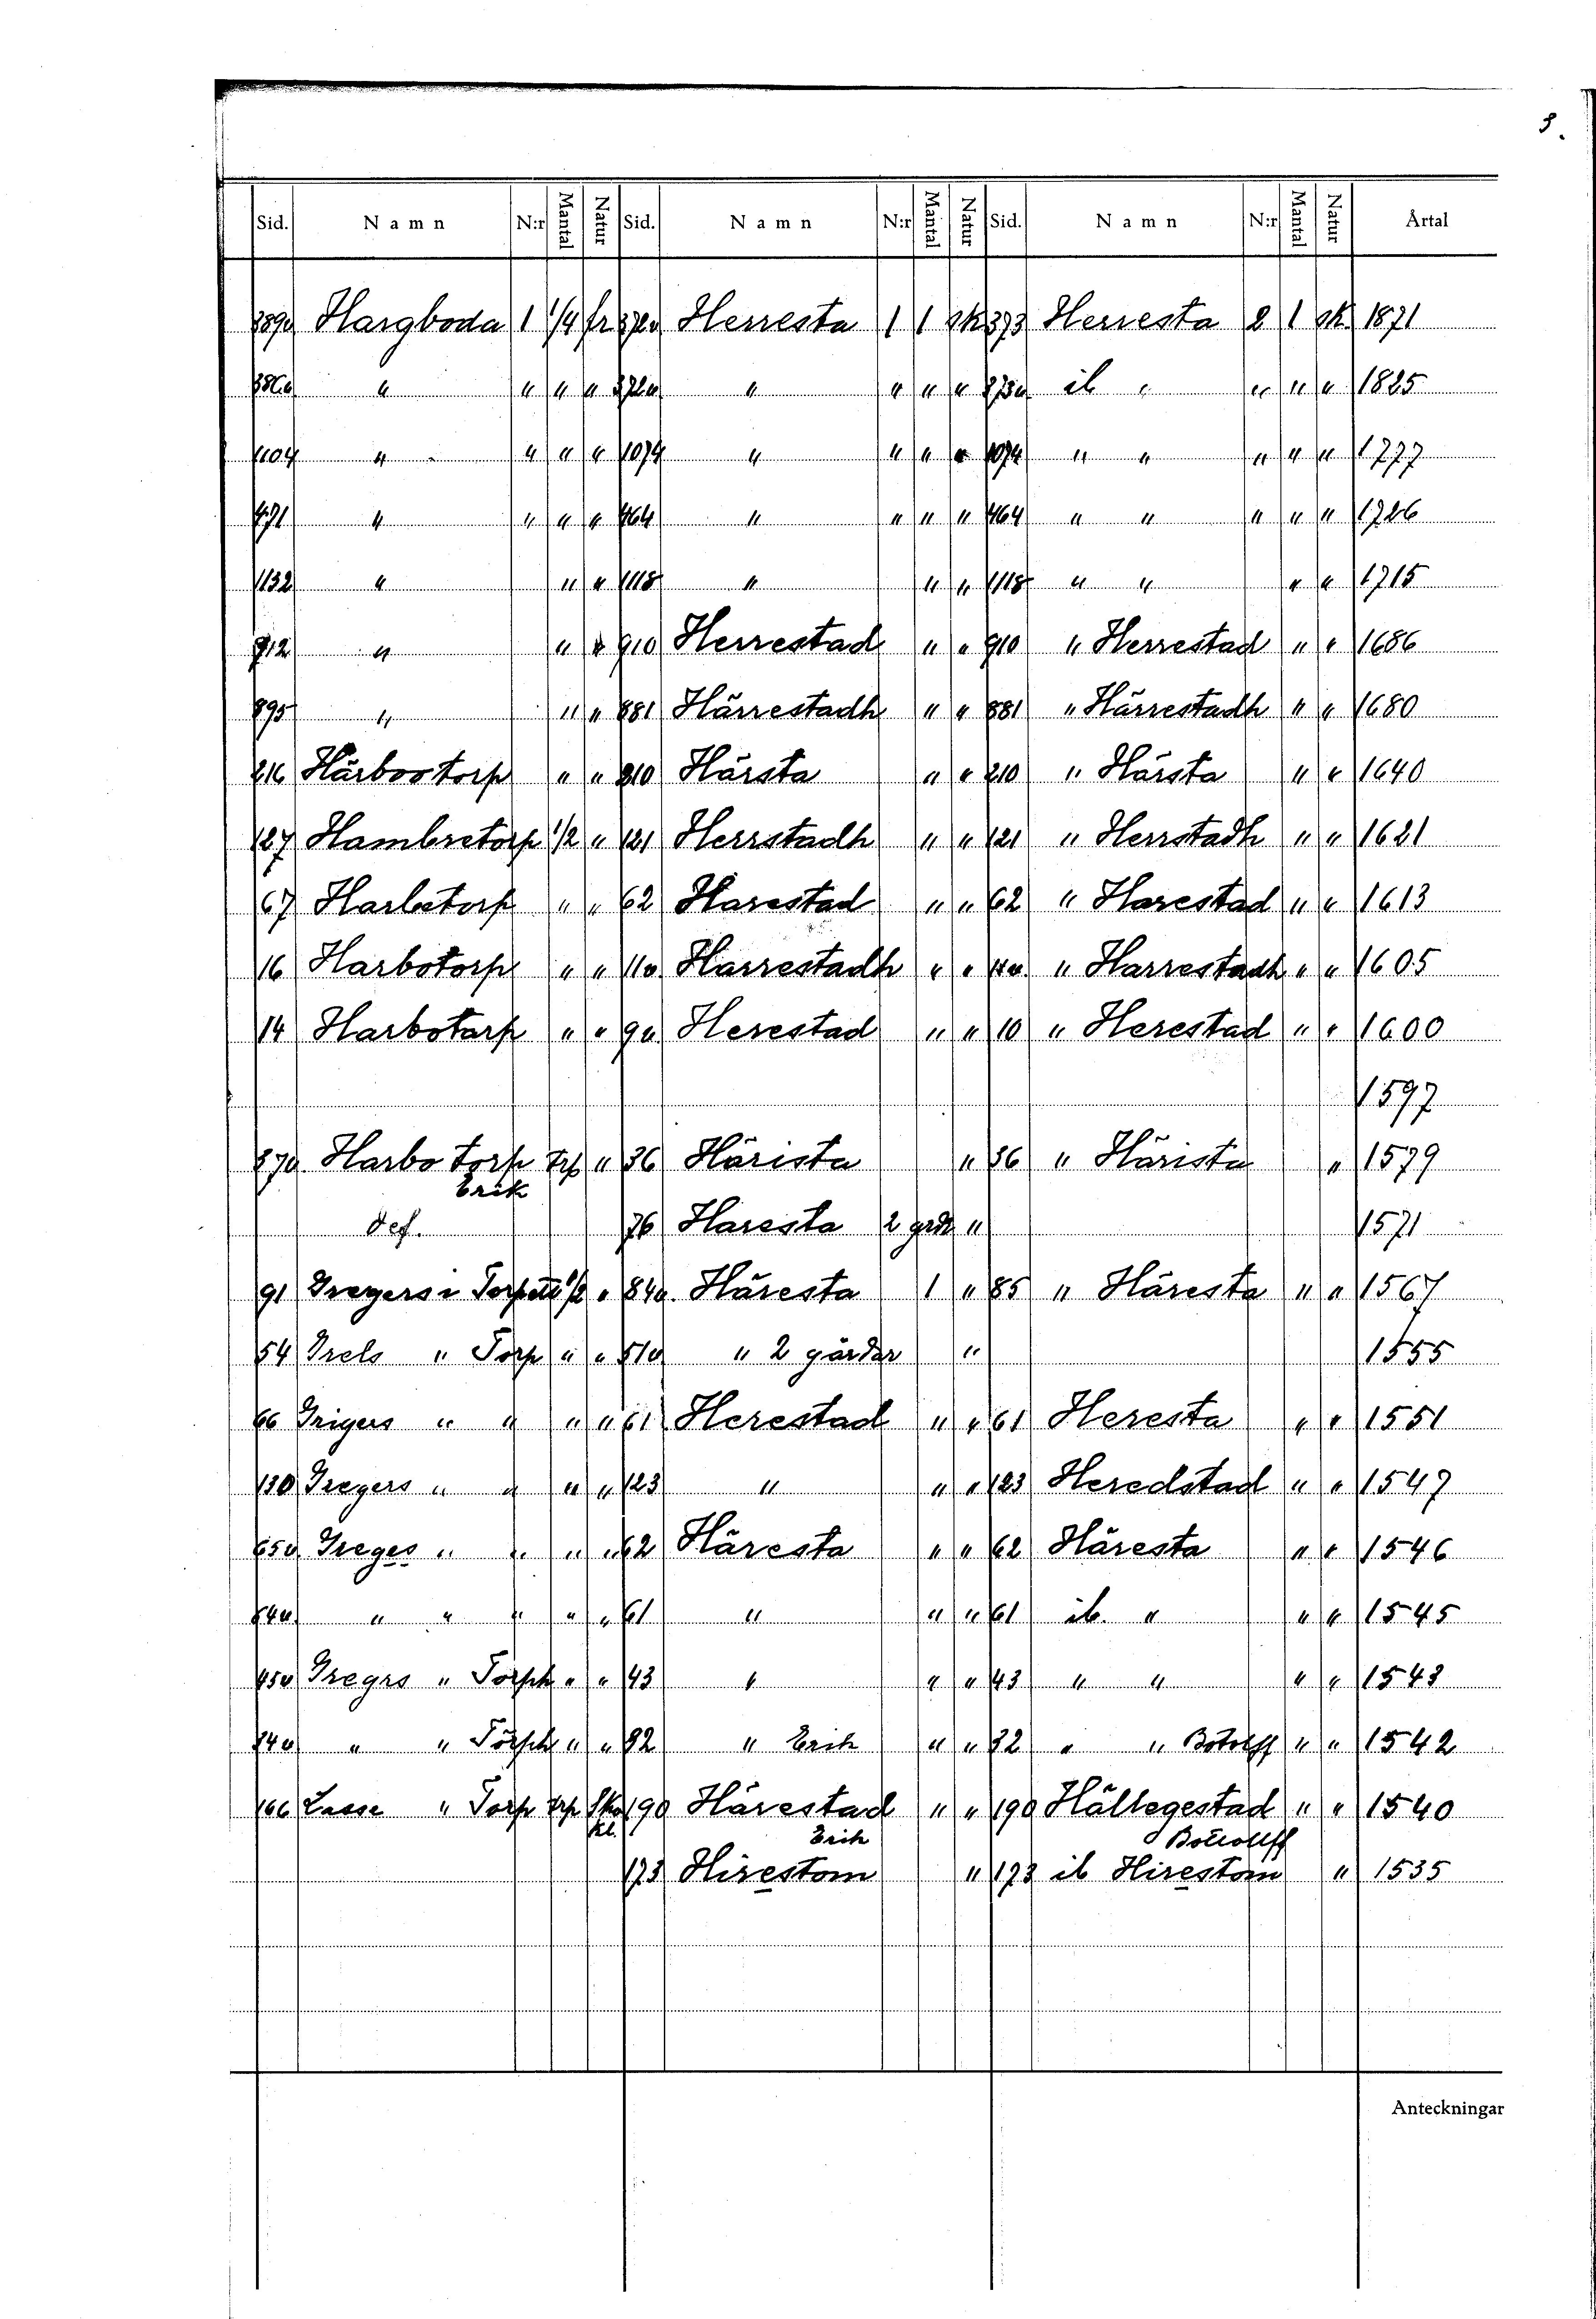 Sid. Namn N:r Mantal Natur Sid. Namn N:r Mantal Natur Sid. Namn N:r Mantal Natur Årtal
Hargboda 1 1/4 fr Herresta 1 1 sk 373 Herresta 2 1 sk. 1871
" " " " " " " " ib " " " " 1825
1104 " " " " 1074 " " " " 1074 " " " " " 1777
471 " " " " 464 " " " " 464 " " " " " 1726
1132 " " " 1118 " " " 1118 " " " " 1715
912 " " " 910 Herrestad " " 910 " Herrestad " " 1686
895 " " " 881 Härrestadh " " 881 " Härrestadh " " 1680
216 Härbostorp " " 210 Härsta " " 210 " Härsta " " 1640
127 Hambretorp 1/2 " 121 Herrstadh " " 121 " Herrstadh " " 1621
67 Harbetorp " " 62 Harestad " " 62 " Harestad " " 1613
16 Harbotorp " " 11a Harrestadh " " 11a. " Harrestadh " " 1605
14 Harbotarp " " 9a Herestad " " 10 " Herestad " " 1600
1597
Harbo torp trp " 36 Härista " 36 " Härista " 1579
Erik
def. 76 Haresta 2 grdr " 1571
91 Gregers i Torpett 1/2 " 84a. Häresta 1 " 85 " Häresta " " 1567
54 Grels " Torp " " 51a " 2 gårdar " 1555
66 Grigers " " " " 61 Herestad " " 61 Heresta " " 1551
130 Gregers " " " " 123 " " " 123 Heredstad " " 1547
65a Greges " " " " 62 Häresta " " 62 Häresta " " 1546
64a " " " " " 61 " " " 61 ib. " " " 1545
45a Gregrs " Torph " " 43 " " " 43 " " " " 1543
84a " " Törph " " 82 " Erik " " 82 " " Botolff " " 1542
166 Lasse " Torp trp Sko 190 Härestad " " 190 Hällegestad " " 1540
kl. Erik Botolff
173 Hirestom " 173 ib Hirestom " 1535
Anteckningar